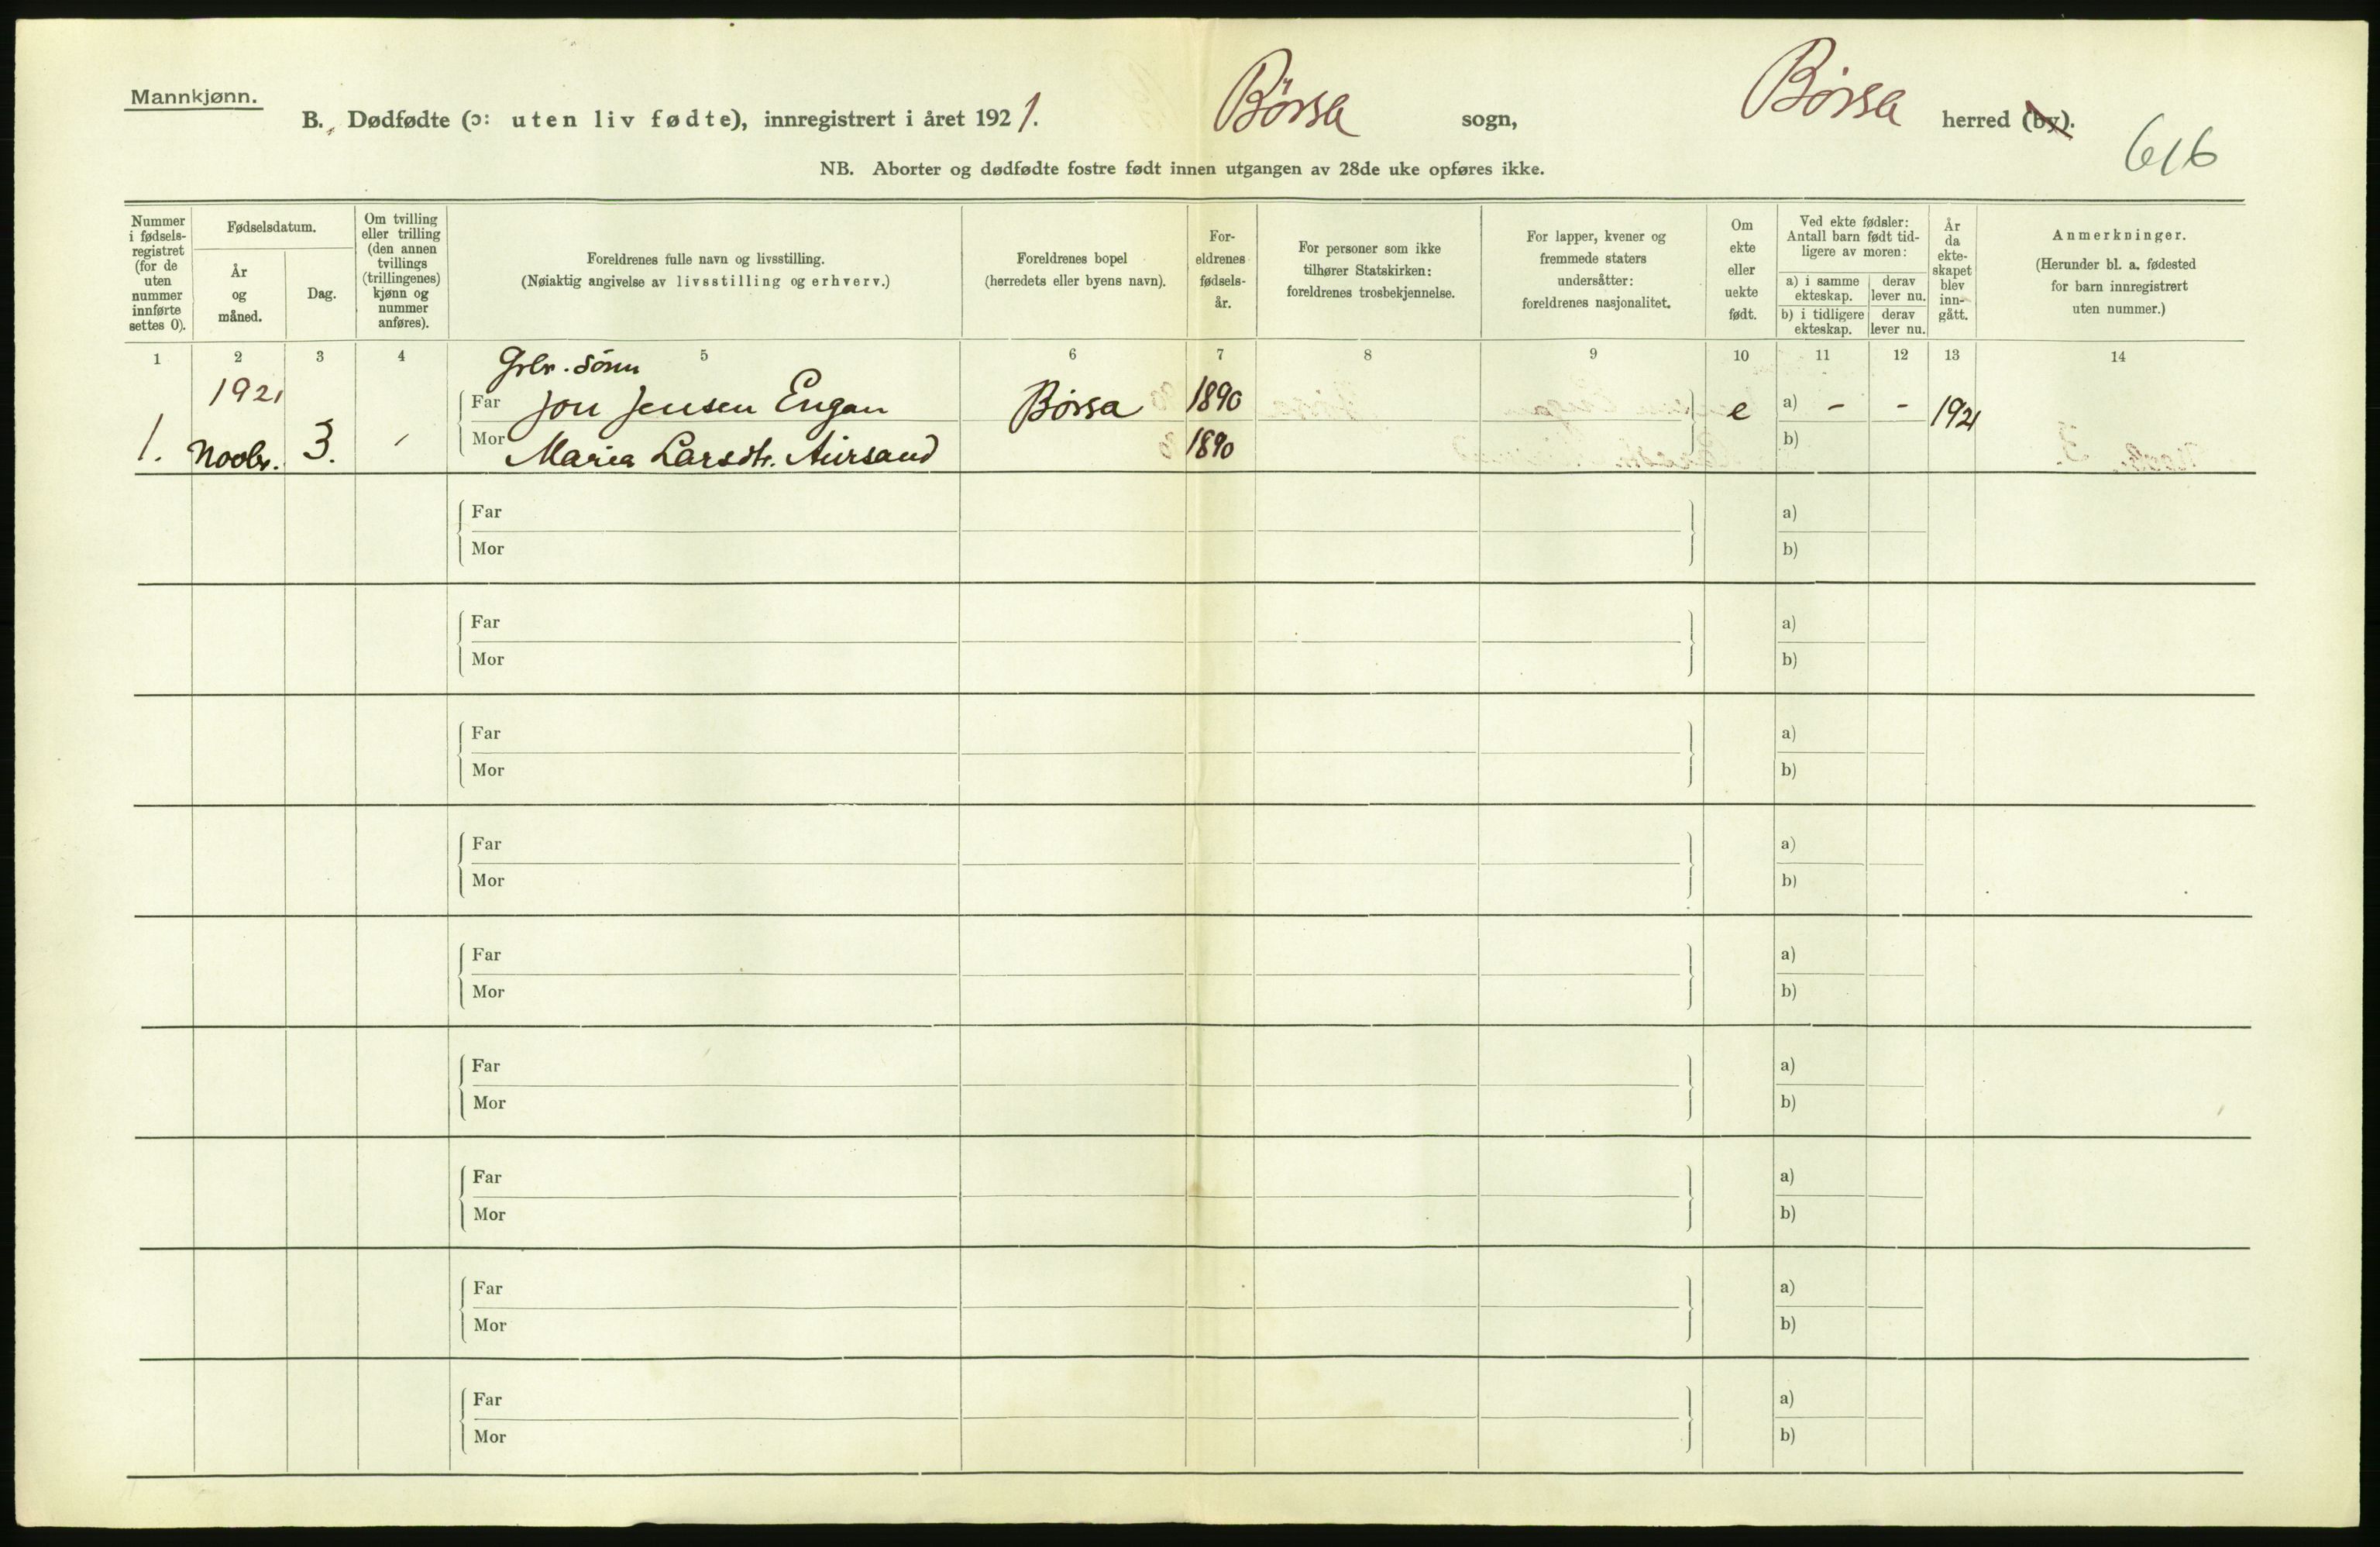 Mannkjønn.
B. Dødfødte (ɔ: uten liv fødte), innregistrert i året 1921. Børsa sogn, Børsa herred (by).
616
NB. Aborter og dødfødte fostre født innen utgangen av 28de uke opføres ikke.
Nummer i fødsels- registret (for de uten nummer innførte settes 0).
Fødselsdatum.
År og måned.
Dag.
Om tvilling eller trilling (den annen tvillings (trillingenes) kjønn og nummer anføres).
Foreldrenes fulle navn og livsstilling.
(Nøiaktig angivelse av livsstilling og erhverv.)
Foreldrenes bopel
(herredets eller byens navn).
For- eldrenes fødsels- år.
For personer som ikke tilhører Statskirken: foreldrenes trosbekjennelse.
For lapper, kvener og fremmede staters undersåtter: foreldrenes nasjonalitet.
Om ekte eller uekte født.
Ved ekte fødsler: Antall barn født tid- ligere av moren:
a) i samme ekteskap. derav lever nu.
b) i tidligere ekteskap. derav lever nu.
År da ekte- skapet blev inn- gått.
Anmerkninger.
(Herunder bl. a. fødested for barn innregistrert uten nummer.)
1 2 3 4 5 6 7 8 9 10 11 12 13 14
Gbr. sönn
1921 Far Jon Jensen Engan Børsa 1890 e a) - - 1921
1. Novbr. 3. Mor Maria Larsdtr. Aursand 1890 b)
Far a)
Mor b)
Far a)
Mor b)
Far a)
Mor b)
Far a)
Mor b)
Far a)
Mor b)
Far a)
Mor b)
Far a)
Mor b)
Far a)
Mor b)
Far a)
Mor b)